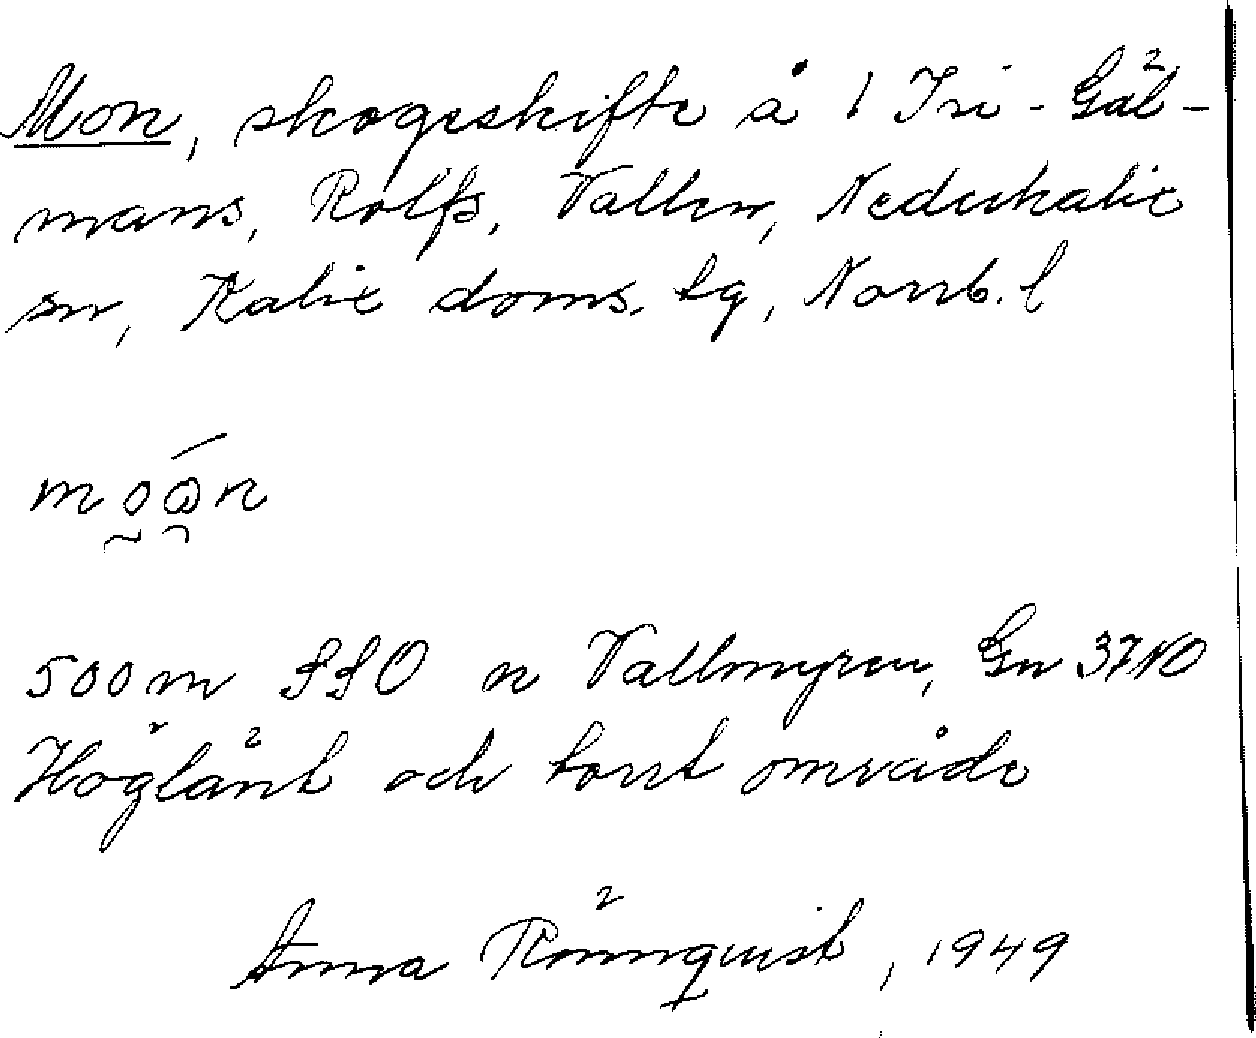 Mon, skogsskifte å 1 Tri - Gäl-
mans, Rolfs, Vallen, Nederkalix
sn, Kalix doms. tg, Norrb. l
moo̯n
500 m SSO n Vallmyren, Gn 37 NO
Höglänt och torrt område
Anna Rönnquist, 1949